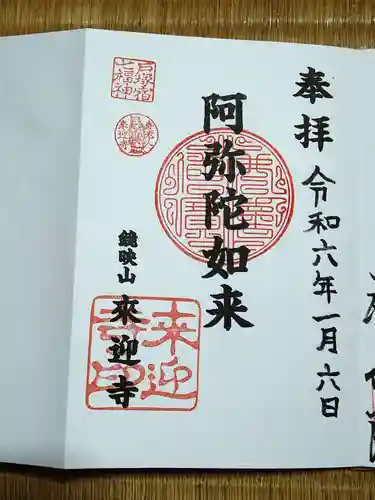 奉拝 令和六年一月六日
阿弥陀如来
鏡映山 來迎寺
戸塚宿
七福神
来迎
寺印